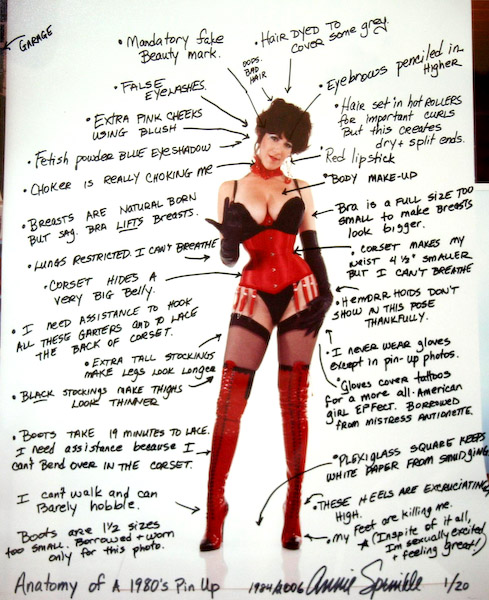 GARAGE
• Mandatory fake
Beauty mark.
OOPS.
BAD
HAIR
• HAIR DYED TO
COVER some grey.
• FALSE
EYELASHES.
• Eyebrows penciled in
Higher
• EXTRA PINK CHEEKS
USING BLUSH
• Hair set in hot ROLLERS
for important curls
But this creates
dry + split ends.
• Fetish powder BLUE EYESHADOW
• Red lipstick
• CHOKER IS REALLY CHOKING ME
• BODY MAKE-UP
• BREASTS ARE NATURAL BORN
BUT SAG. BRA LIFTS BREASTS.
• Bra is a FULL SIZE TOO
SMALL to make BREASTS
look bigger.
• LUNGS RESTRICTED I CAN'T BREATHE
• CORSET MAKES MY
WAIST 4 1/2" SMALLER
BUT I CAN'T BREATHE
• CORSET HIDES A
very Big Belly.
• HEMORR HOIDS DON'T
SHOW IN THIS POSE
THANKFULLY.
• I NEED ASSISTANCE TO HOOK
ALL THESE GARTERS AND TO LACE
THE BACK OF CORSET.
• I NEVER WEAR GLOVES
EXCEPT IN PIN-UP PHOTOS.
• EXTRA TALL STOCKINGS
MAKE LEGS LOOK LONGER
• Gloves COVER tattoos
for a more all-American
girl EFFECT. BORROWED
FROM MISTRESS ANTIONETTE.
• BLACK STOCKINGS MAKE THIGHS
LOOK THINNER
• Boots TAKE 19 MINUTES TO LACE.
I need assistance because I
can't Bend over IN THE CORSET.
• PLEXIGLASS SQUARE KEEPS
WHITE PAPER FROM SMUDGING.
• I can't walk and can
Barely hobble.
• THESE HEELS ARE EXCRUCIATINGLY
HIGH.
Boots are 1 1/2 sizes
too small. Borrowed + worn
only for this photo.
• My Feet are killing me.
(Inspite of it all,
I'm sexually excited
+ feeling great!)
Anatomy of A 1980's Pin Up 1984/2006 Annie Sprinkle 1/20